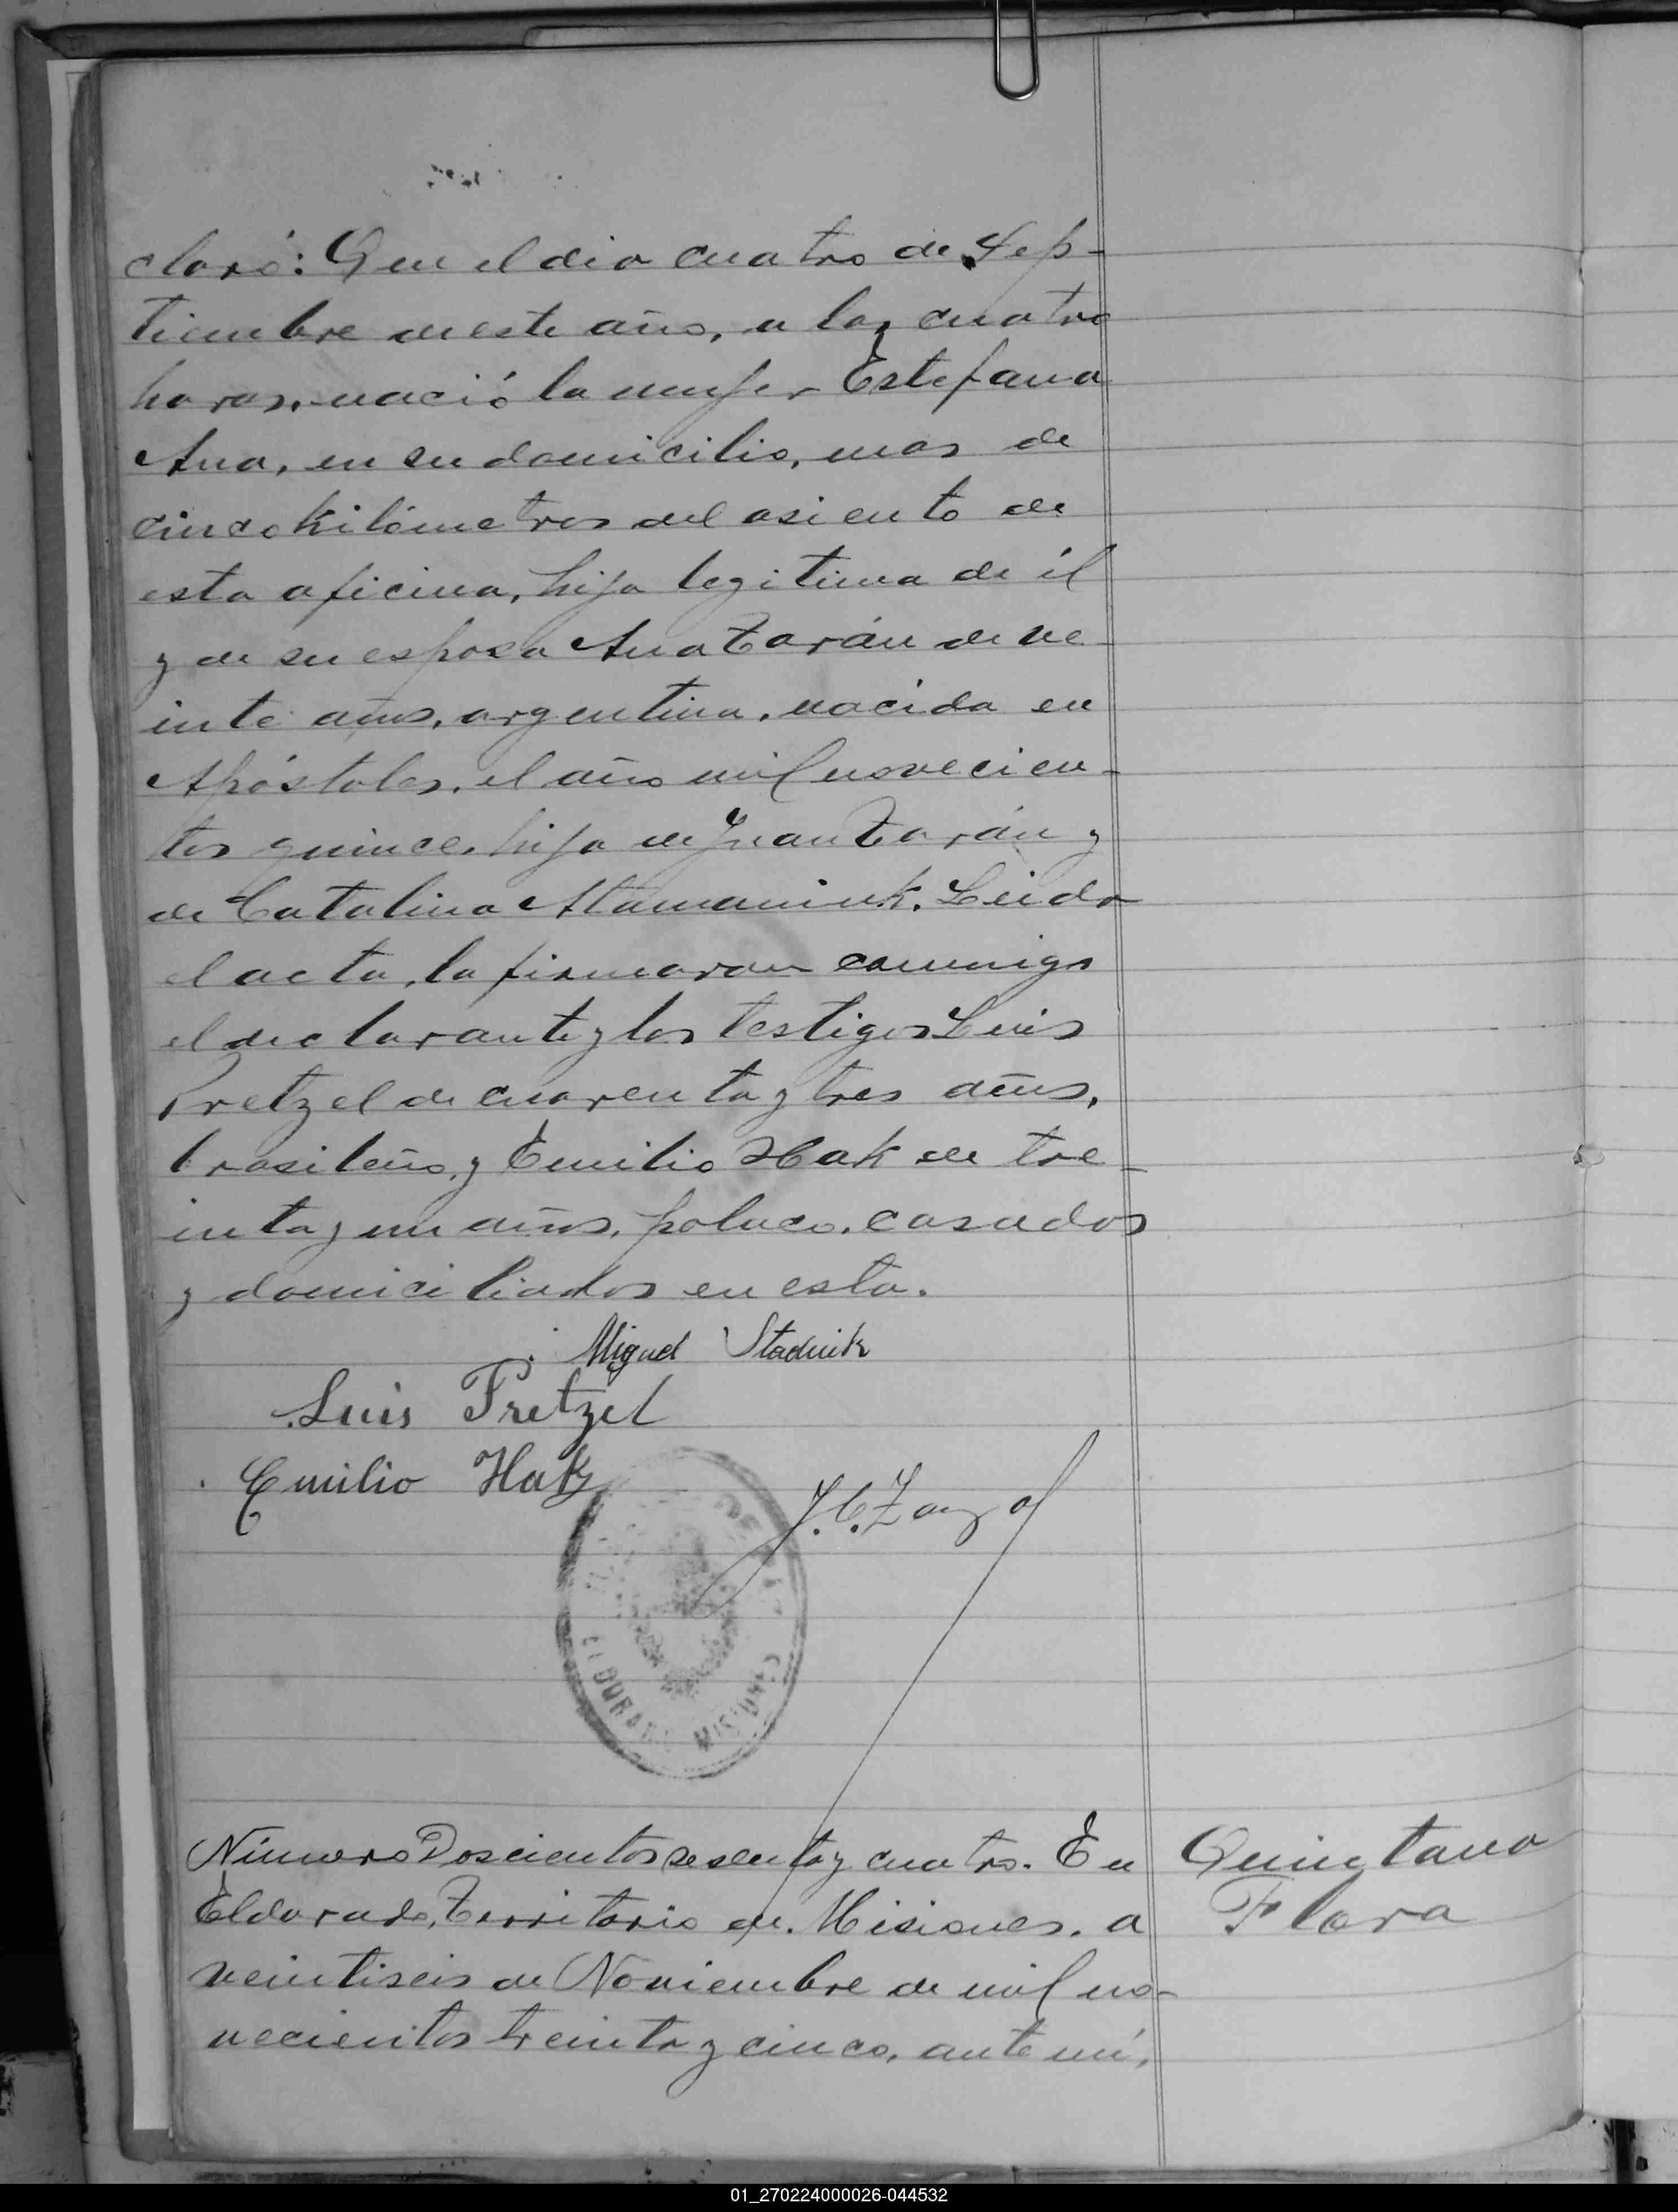 claró: Que el dia cuatro de Sep-
tiembre de este año, a las cuatro
horas, nació la mujer Estefana
Ana, en su domicilio, mas de
cinco kilómetros del asiento de
esta oficina, hija legitima de él
y de su esposa Ana Tarán de ve-
inte años, argentina, nacida en
Apóstoles, el año mil novecien-
tos quince, hija de Juan Tarán y
de Catalina Atamaniuk. Leida
el acta, la firmaron conmigo
el declarante y los testigos Luis
Pretzel de cuarenta y tres años,
brasileño, y Emilio Hak de tre-
inta y un años, polaco, casados
y domiciliados en esta.
Miguel Stadnik
Luis Pretzel
Emilio Hak
J. C. Z
DE
ELDORADO MISIONES
Número Doscientos sesenta y cuatro. En
Eldorado, Territorio de Misiones, a
veintiseis de Noviembre de mil no-
vecientos treinta y cinco, ante mí,
Quintana
Flora
01_270224000026-044532